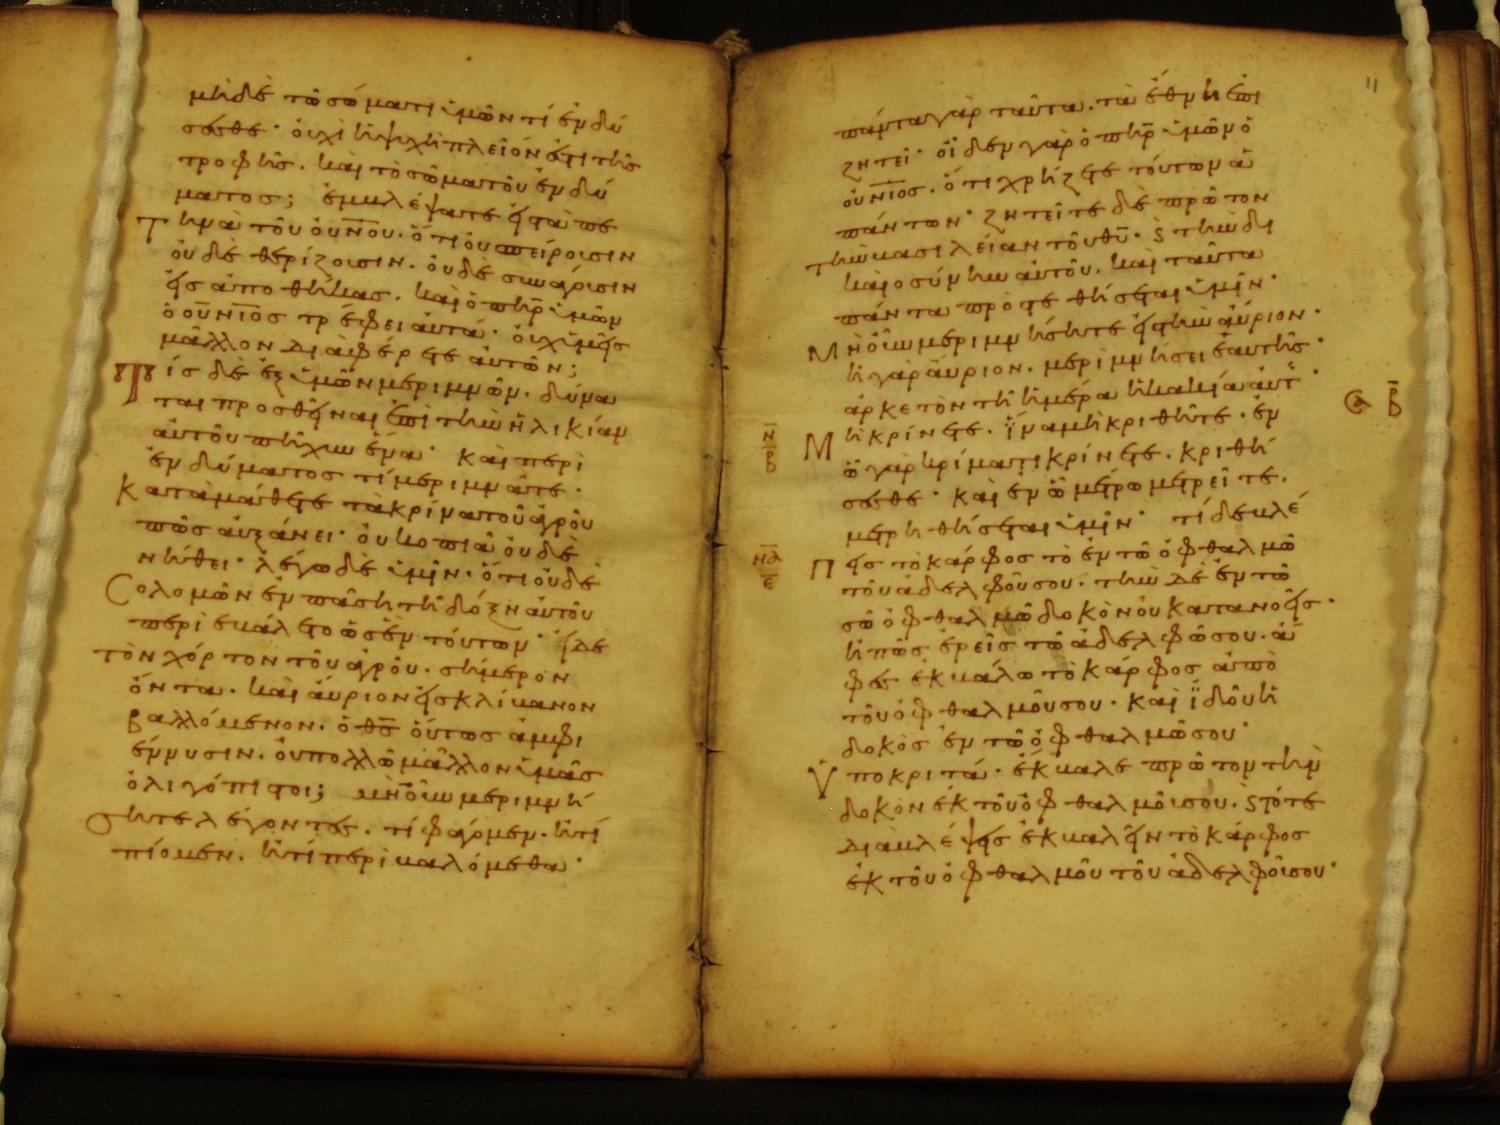 μηδὲ τῶ σώματι ὑμῶν τί ἐνδύ
σησθε· οὐχὶ ἡ ψυχὴ πλεῖόν ἐστι τῆς
τροφῆς. καὶ τὸ σῶμα τοῦ ἐνδύ
ματος; ἐμβλέψατε εἰς τὰ πε
τηνὰ τοῦ οὐν̅ου· ὅτι οὐ σπείρουσιν
οὐδὲ θερίζουσιν. οὐδὲ συνάγουσιν
εἰς ἀποθήκας. καὶ ὁ πη̅ρ ὑμῶν
ὁ οὐν̅ιος τρέφει αὐτά· οὐχ ὑμεῖς
μᾶλλον διαφέρετε αὐτῶν;
Τίς δὲ ἐξ ὑμῶν μεριμνῶν. δύνα
ται προσθεῖναι ἐπὶ τὴν ἡλικίαν
αὐτοῦ πῆχυν ἕνα· καὶ περὶ
ἐνδύματος τί μεριμνᾶτε·
Καταμάθετε τὰ κρίνα τοῦ ἀγροῦ
πῶς αὐξάνει· οὐ κοπιᾶ οὐδὲ
νήθει· λέγω δὲ ὑμῖν· ὅτι οὐδὲ
Σολομῶν ἐν πάση τῆ δόξη αὐτοῦ
περιεβάλετο ὡς ἓν τούτων· εἰ δὲ
τὸν χόρτον τοῦ ἀγροῦ. σήμερον
ὄντα. καὶ αὔριον εἰς κλίβανον
βαλλόμενον. ὁ θ̅ς οὕτως ἀμφι
έννυσιν. οὐ πολλῶ μᾶλλον ὑμᾶς
ὀλιγόπιστοι; μὴ οὖν μεριμνή
σητε λέγοντες. τί φάγομεν. ἢ τί
πίομεν. ἢ τί περιβαλόμεθα·
11
πάντα γὰρ ταῦτα. τὰ ἔθνη ἐπι
ζητεῖ· οἶδεν γὰρ ὁ πη̅ρ ὑμῶν ὁ
οὐν̅ιος. ὅτι χρήζετε τούτων ἁ
πάντων· ζητεῖτε δὲ πρῶτον
τὴν βασιλείαν τοῦ θυ̅. ϗ τὴν δι
καιοσύνην αὐτοῦ. καὶ ταῦτα
πάντα προστεθήσεται ὑμῖν·
Μὴ οὖν μεριμνήσητε εἰς τὴν αὔριον·
ἡ γὰρ αὔριον. μεριμνήσει ἑαυτῆς·
ἀρκετὸν τῆ ἡμέρα ἡ κακία αὐτῆς·
Μὴ κρίνετε. ἵνα μὴ κριθῆτε· ἐν
ὧ γὰρ κρίματι κρίνετε. κριθή
σεσθε· καὶ ἐν ὧ μέτρω μετρεῖτε.
μετρηθήσεται ὑμῖν· τί δὲ βλέ
πεις τὸ κάρφος τὸ ἐν τῶ ὀφθαλμῶ
τοῦ ἀδελφοῦ σου· τὴν δὲ ἐν τῶ
σῶ ὀφθαλμῶ δοκὸν οὐ κατανοεῖς·
ἢ πῶς ἐρεῖς τῶ ἀδελφῶ σου. ἄ
φες ἐκβάλω τὸ κάρφος ἀπὸ
τοῦ ὀφθαλμοῦ σου· καὶ ἰδοὺ ἡ
δοκὸς ἐν τῶ ὀφθαλμῶ σου·
Ὑποκριτά· ἔκβαλε πρῶτον τὴν
δοκὸν ἐκ τοῦ ὀφθαλμοῦ σου. ϗ τότε
διαβλέψεις ἐκβαλεῖν τὸ κάρφος
ἐκ τοῦ ὀφθαλμοῦ τοῦ ἀδελφοῦ σου·
ν̅
β
να̅
ε